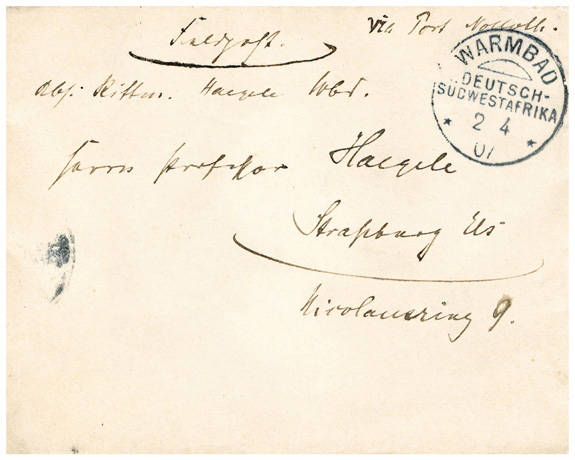 Feldpost.
via Port Nolloth.
Abs: Rittm. Haegele Wbd.
WARMBAD
DEUTSCH-
SÜDWESTAFRIKA
* 2 4 *
07
Herrn Professor Haegele
Straßburg Els
Nicolausring 9.